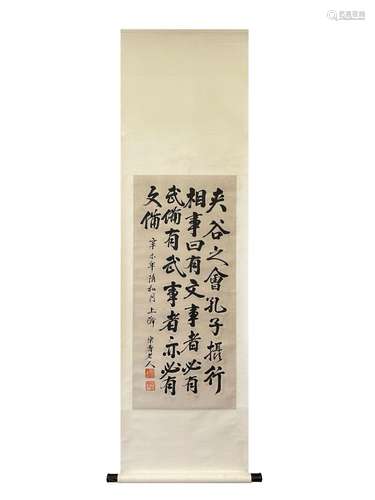 夾谷之會孔子攝行
相事曰有文事者必有
武備有武事者亦必有
文備
辛未年清和月上澣
老人